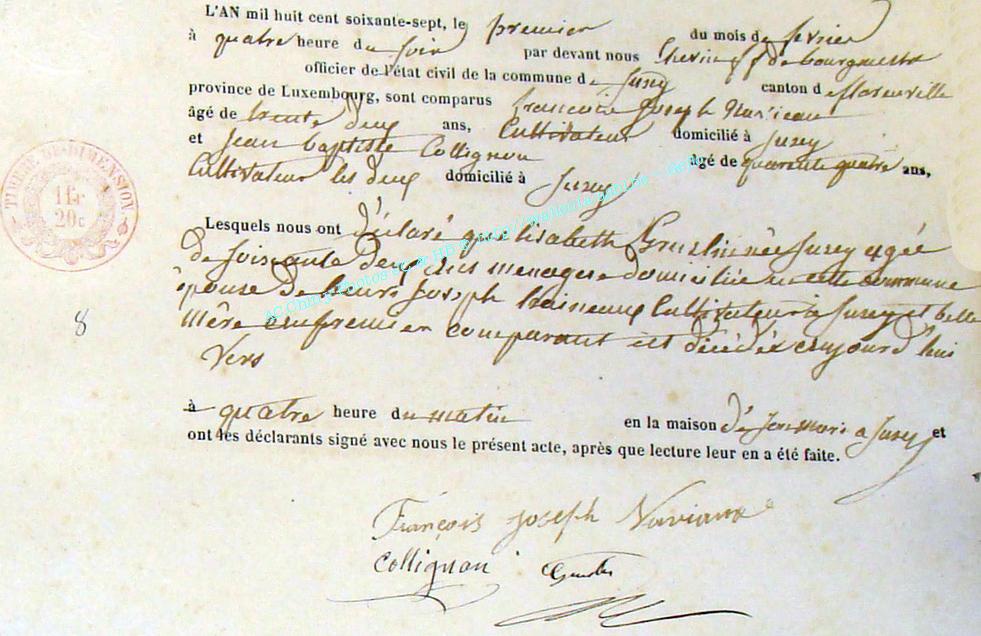 L'AN mil huit cent soixante-sept, le premier du mois de fevrier
à quatre heure du soir par devant nous Echevin ff de bourgmestre
officier de l'état civil de la commune de Jusey canton de florenville
province de Luxembourg, sont comparus francois Joseph
âgé de trente deux ans, Cultivateur domicilié à Jusey
et Jean baptiste Collignon âgé de quarente quatre ans,
Cultivateur les deux domicilié à Jusey
Lesquels nous ont déclaré que lisabeth née Jusey agée
de soissante deux ans menagere domiciliée en cette commune
épouse de henri Joseph Cultivateur à Jusey et belle
mère au premier comparant est décédée aujourd'hui
Vers
à quatre heure du matin en la maison de son mari a Jusey et
ont les déclarants signé avec nous le présent acte, après que lecture leur en a été faite.
François Joseph Naviaux
Collignon
TIMBRE DE DIMENSION
1 fr
20 c
8